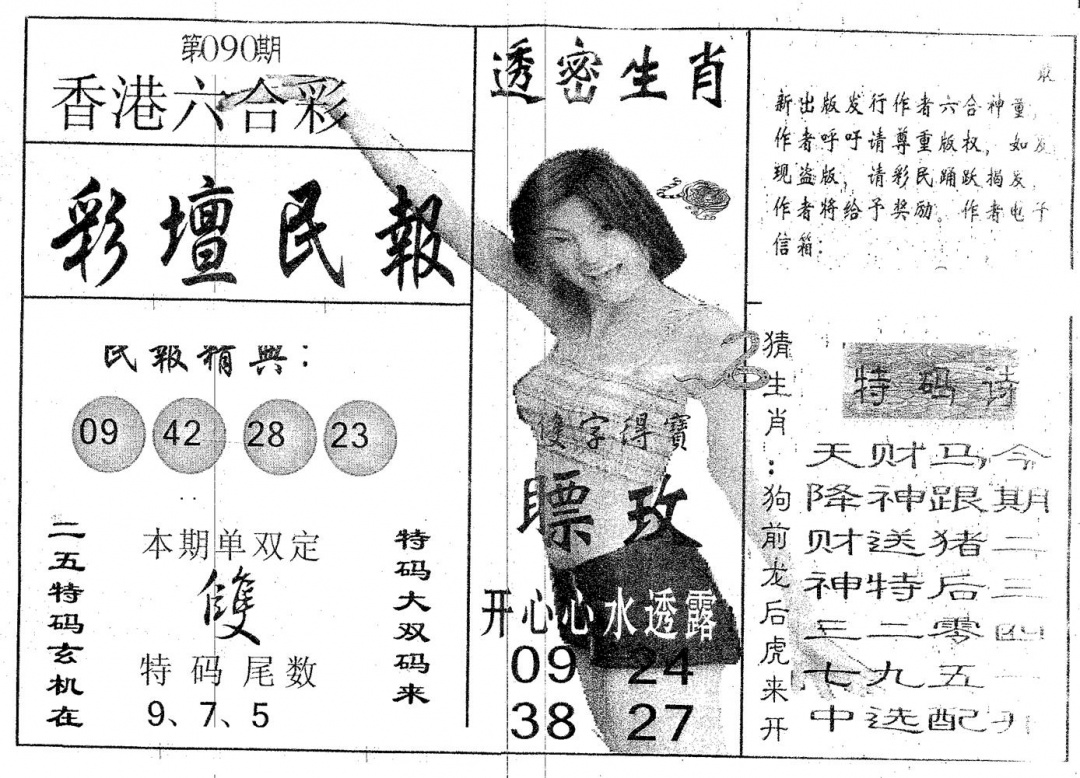 第090期
香港六合彩
彩壇民報
民報精典：
09 42 28 23
二五特码玄机在
本期单双定
雙
特码尾数
9、7、5
特码大双码来
透密生肖
雙字得寶
瞟玫
开心心水透露
09 24
38 27
新出版发行作者六合神童,
作者呼吁请尊重版权，如发
现盗版，请彩民踊跃揭发
作者将给予奖励。作者电子
信箱：
猜生肖：狗前龙后虎来开
特码诗
今期二三四一开
马跟猪后零五配
财神送特二九选
天降财神三七中